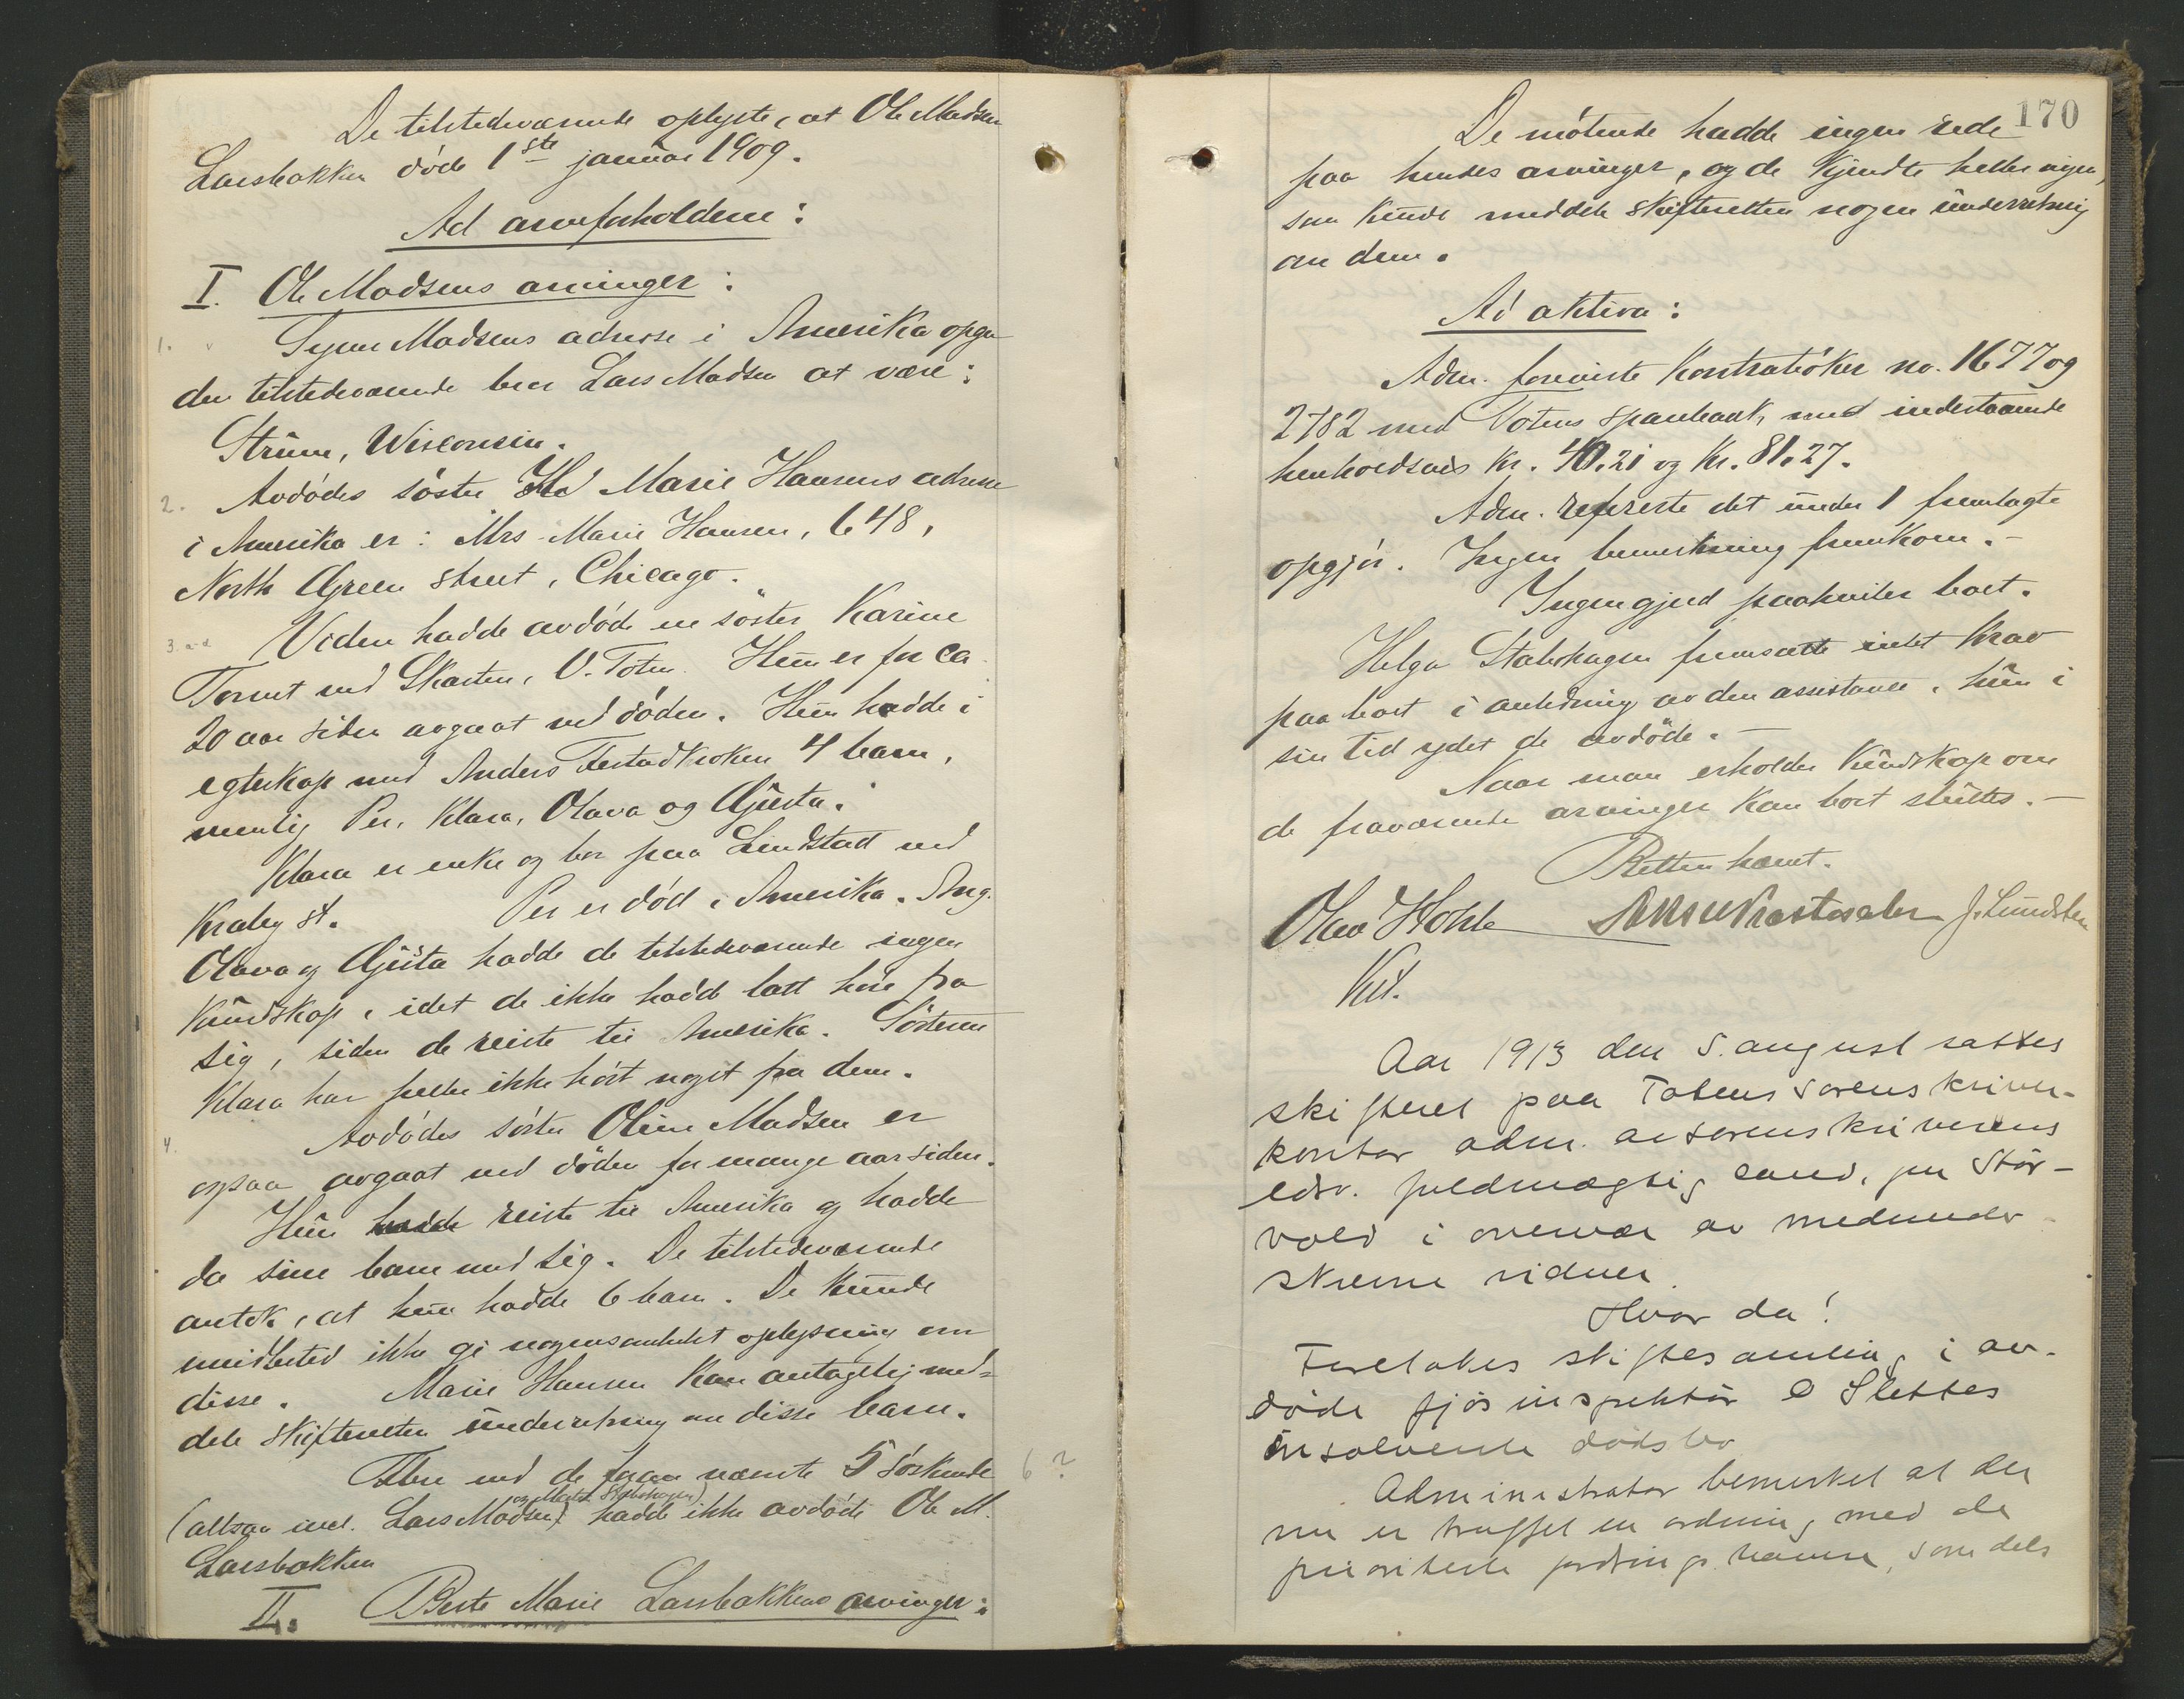 De tilstedeværende oplyste, at Ole Madsen
Larsbakken døde 1ste januar 1909.
Ad arveforholdene:
I. Ole Madsens arvinger:
1. Madsens adresse i Amerika opga
den tilstedeværende bror Lars Madsen at være:
Strüm, Wisconsin.
2. Avdødes søster Marie Hansens adresse
i Amerika er: Mrs. Marie Hansen, 648,
North Green Street, Chicago.
3. a-d Viden hadde avdøde en søster Karine
ved Skarten, V. Toten. Hun er for ca.
20 aar siden avgaat ved døden. Hun hadde i
egteskap med Anders 4 barn,
nemlig Per, Klara, Olava og Gusta.
Klara er enke og bor paa Lindstad ved
Kraby st. Per er død i Amerika. Ang.
Olava og Gusta hadde de tilstedeværende ingen
kundskap, idet de ikke hadde latt høre fra
sig, siden de reiste til Amerika. Søsteren
Klara har heller ikke hørt noget fra dem.
4. Avdødes søster Oline Madsen er
ogsaa avgaat ved døden for mange aar siden.
Hun reiste til Amerika og hadde
da sine barn med sig. De tilstedeværende
antok, at hun hadde 6 barn. De kunde
imidlertid ikke gi nogensomhelst oplysning om
disse. Marie Hansen kan antagelig med-
dele skifteretten underretning om disse barn.
Flere end de foran nævnte 5 søskende 6?
og Stabshagen)
(altsaa incl. Lars Madsen hadde ikke avdøde Ole M.
Larsbakken
II. Berte Marie Larsbakkens arvinger:
170
De møtende hadde ingen rede
paa hendes arvinger, og de kjendte heller ingen,
som kunde meddele skifteretten nogen underretning
om dem.
Ad aktiva:
Adm. foreviste kontrabøker no. 1677 og
2782 med Totens sparebank, med indestaaende
henholdsvis kr. 40.21 og kr. 81.27.
Adm. refererte det under 1 fremlagte
opgjør. Ingen bemerkning fremkom.-
Ingen gjeld paahviler boet.
Helga Stabshagen fremsatte intet krav
paa boet i anledning av den assistance, hun i
sin tid ydet de avdøde.-
Naar man erholder kundskap om
de fraværende arvinger kan boet sluttes.-
Retten hævet.
Olav J. Lundsten
Vit.
Aar 1913 den 5. august sattes
skifteret paa Totens sorenskriver-
kontor adm. av sorenskriverens
edsv. fuldmægtig cand. jur Stør-
vold i overvær av medunder-
skrevne vidner.
Hvor da!
Foretokes skiftesamling i av-
døde fjøsinspektør O Slettes
insolvente dødsbo
Administrator bemerket at der
nu er truffet en ordning med de
prioriterte fordringshavere, som dels